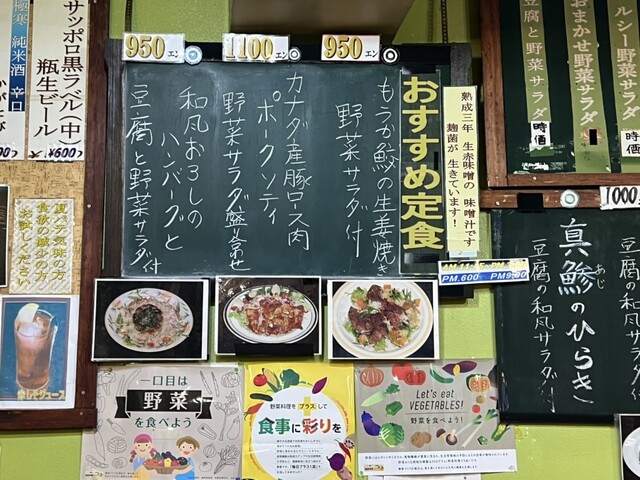 サッポロ黒ラベル(中)
瓶生ビール
¥600
極寒 純米酒 辛口
夏バテ気味の方
食欲の減少の方
お試しください
950エン
1100エン
950エン
おすすめ定食
熟成三年 生赤味噌の 味噌汁です
麹菌が 生きています!
もうか鮫の生姜焼き
野菜サラダ付
カナダ産豚ロース肉
ポークソティ
野菜サラダ盛合せ
和風おろしの
ハンバーグと
豆腐と野菜サラダ付
PM.600
PM9.00
ルシー野菜サラダ
時価
おまかせ野菜サラダ
豆腐と野菜サラダ
時価
1000
豆腐の和風サラダ付
真鯵のひらき
あじ
豆腐の和風サラダ付
一口目は
野菜
を食べよう
野菜料理をプラスして
食事に彩りを
「毎日プラス1皿」
Let's eat
VEGETABLES!
野菜を食べよう!